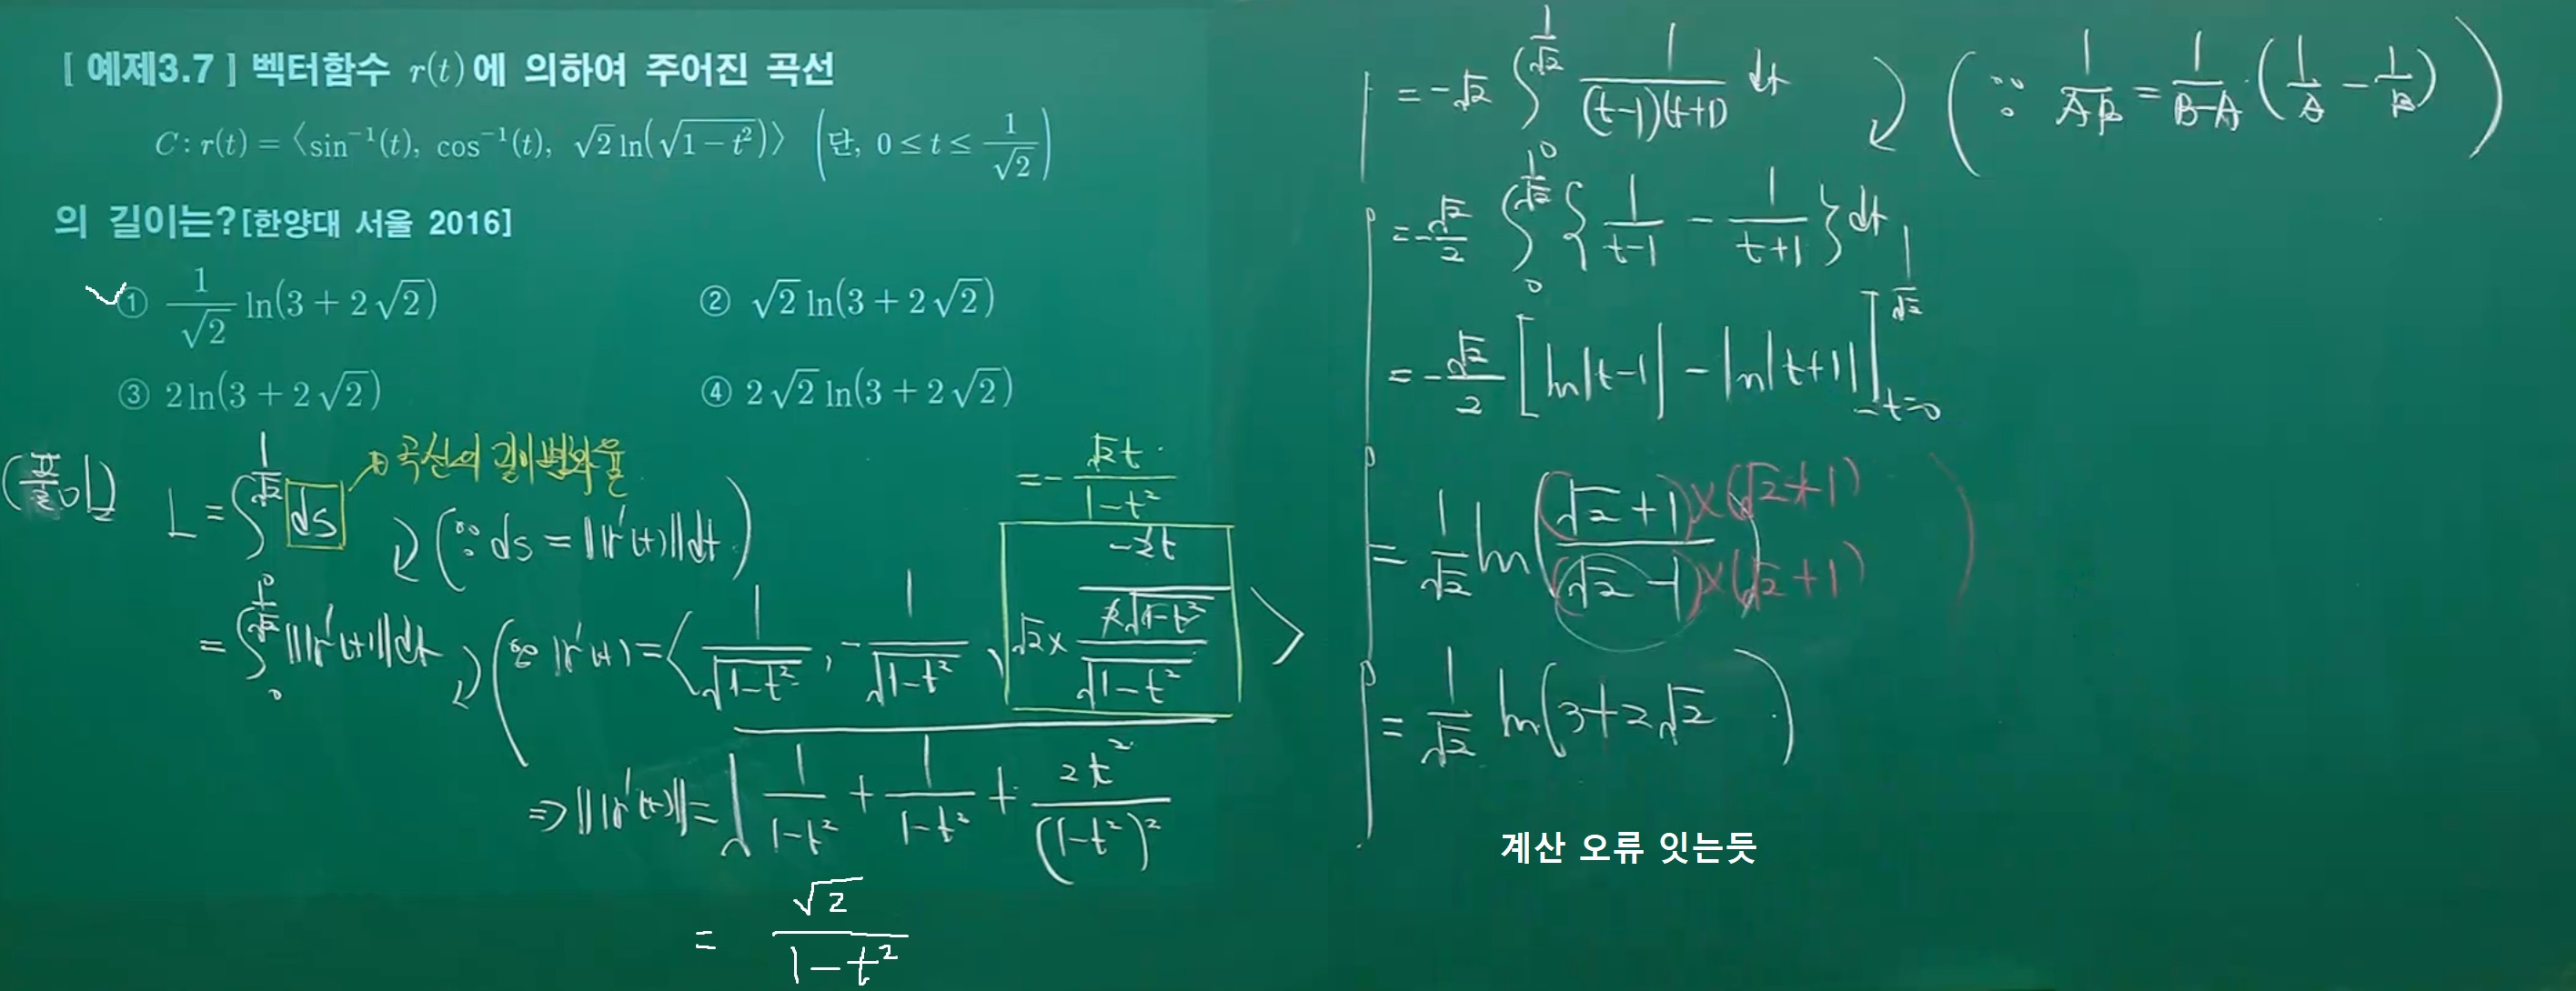 [ 예제3.7 ] 벡터함수 r(t)에 의하여 주어진 곡선
C : r(t) = ⟨sin⁻¹(t), cos⁻¹(t), √2 ln(√(1−t²))⟩ (단, 0 ≤ t ≤ 1/√2)
의 길이는? [한양대 서울 2016]
✓① 1/√2 ln(3 + 2√2)
② √2 ln(3 + 2√2)
③ 2ln(3 + 2√2)
④ 2√2 ln(3 + 2√2)
(풀이) L = ∫₀^(1/√2) ds → 곡선의 길이변화율
(∵ ds = ||r'(t)||dt)
= ∫₀^(1/√2) ||r'(t)||dt (∵ r'(t) = ⟨1/√(1−t²), −1/√(1−t²), √2 × ((−2t)/(2√(1−t²)))/√(1−t²)⟩
= − √2t/(1−t²)
⇒ ||r'(t)|| = √(1/(1−t²) + 1/(1−t²) + 2t²/(1−t²)²)
= √2/(1−t²)
= −√2 ∫₀^(1/√2) 1/((t−1)(t+1)) dt (∵ 1/AB = 1/(B−A) · (1/A − 1/B))
= −√2/2 ∫₀^(1/√2) {1/(t−1) − 1/(t+1)} dt
= −√2/2 [ln|t−1| − ln|t+1|]_(t=0)^(1/√2)
= 1/√2 ln((√2+1)×(√2+1)/(√2−1)×(√2+1))
= 1/√2 ln(3+2√2)
계산 오류 잇는듯